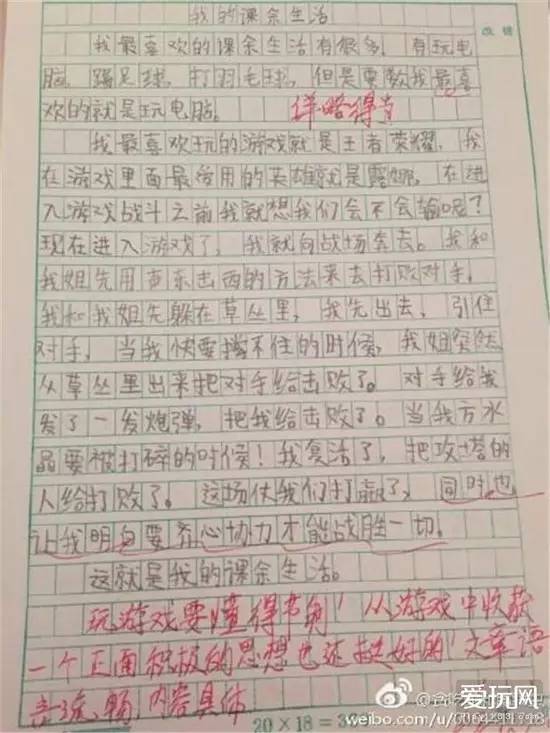 我的课余生活
我最喜欢的课余生活有很多，有玩电
脑，踢足球，打羽毛球，但是要数我最喜
欢的就是玩电脑。
详略得当
我最喜欢玩的游戏就是王者荣耀，我
在游戏里面最爱用的英雄就是露娜，在进
入游戏战斗之前我就想我们会不会输呢？
现在进入游戏了，我就向战场奔去。我和
我姐先用声东击西的方法来去打败对手，
我和我姐先躲在草丛里，我先出去，引住
对手，当我快要撑不住的时候，我姐突然
从草丛里出来把对手给击败了。对手给我
发了一发炮弹，把我给击败了。当我方水
晶要被打碎的时候！我复活了，把攻塔的
人给打败了。这场仗我们打赢了，同时也
让我明白要齐心协力才能战胜一切。
这就是我的课余生活。
玩游戏要懂得节制！从游戏中收获
一个正面积极的思想也还挺好的！文章语
言流畅，内容具体
20×18=3
爱玩网